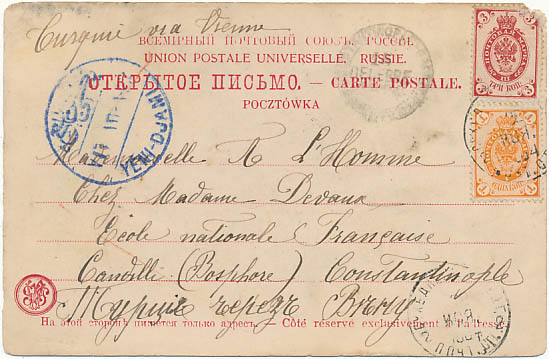 Turquie via Vienne
ВСЕМІРНЫЙ ПОЧТОВЫЙ СОЮЗЪ. РОССІЯ.
UNION POSTALE UNIVERSELLE. RUSSIE.
ОТКРЫТОЕ ПИСЬМО. — CARTE POSTALE.
POCZTÓWKA
3 3
3 3
1 1
1 1
YENI-DJAMI
Mademoiselle A L'Homme
Chez Madame Devaux
École nationale Française
Candilli (Bosphore) Constantinople
Турція черезъ Вѣну
На этой сторонѣ пишется только адресъ. — Côté réservé exclusivement à l'adresse.